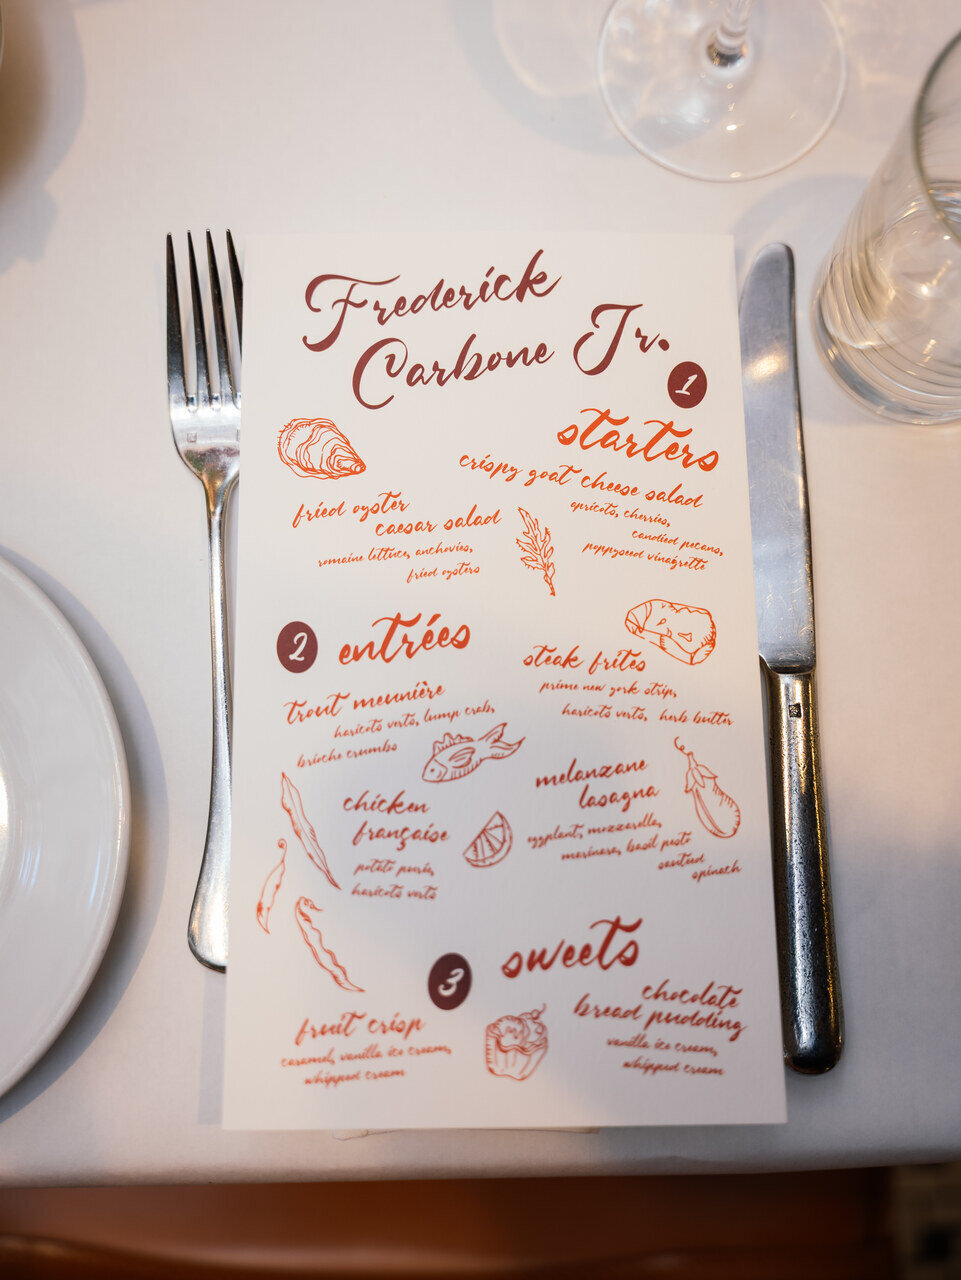 Frederick
Carbone Jr.
1
starters
fried oyster
caesar salad
romaine lettuce, anchovies,
fried oysters
crispy goat cheese salad
apricots, cherries,
candied pecans,
poppyseed vinagrette
2
entrées
trout meunière
haricots verts, lump crab,
brioche crumbs
steak frites
prime new york strip,
haricots verts, herb butter
chicken
française
potato purée,
haricots verts
melanzane
lasagna
eggplant, mozzarella,
marinara, basil pesto
sauteed
spinach
3
sweets
fruit crisp
caramel, vanilla ice cream,
whipped cream
chocolate
bread pudding
vanilla ice cream,
whipped cream